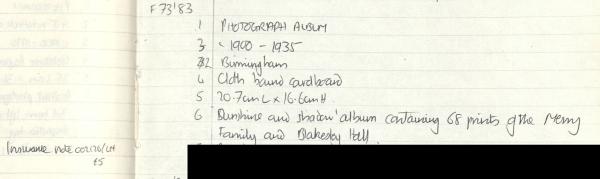 F73'83
1 PHOTOGRAPH ALBUM
3 c 1900 - 1935
2 Birmingham
4 Cloth bound cardboard
5 20.7cm L x 16.6cm H
6 Sunshine and shadow' album containing 68 prints of the Merry
Family and Blakesley Hall.
Insurance note
£5